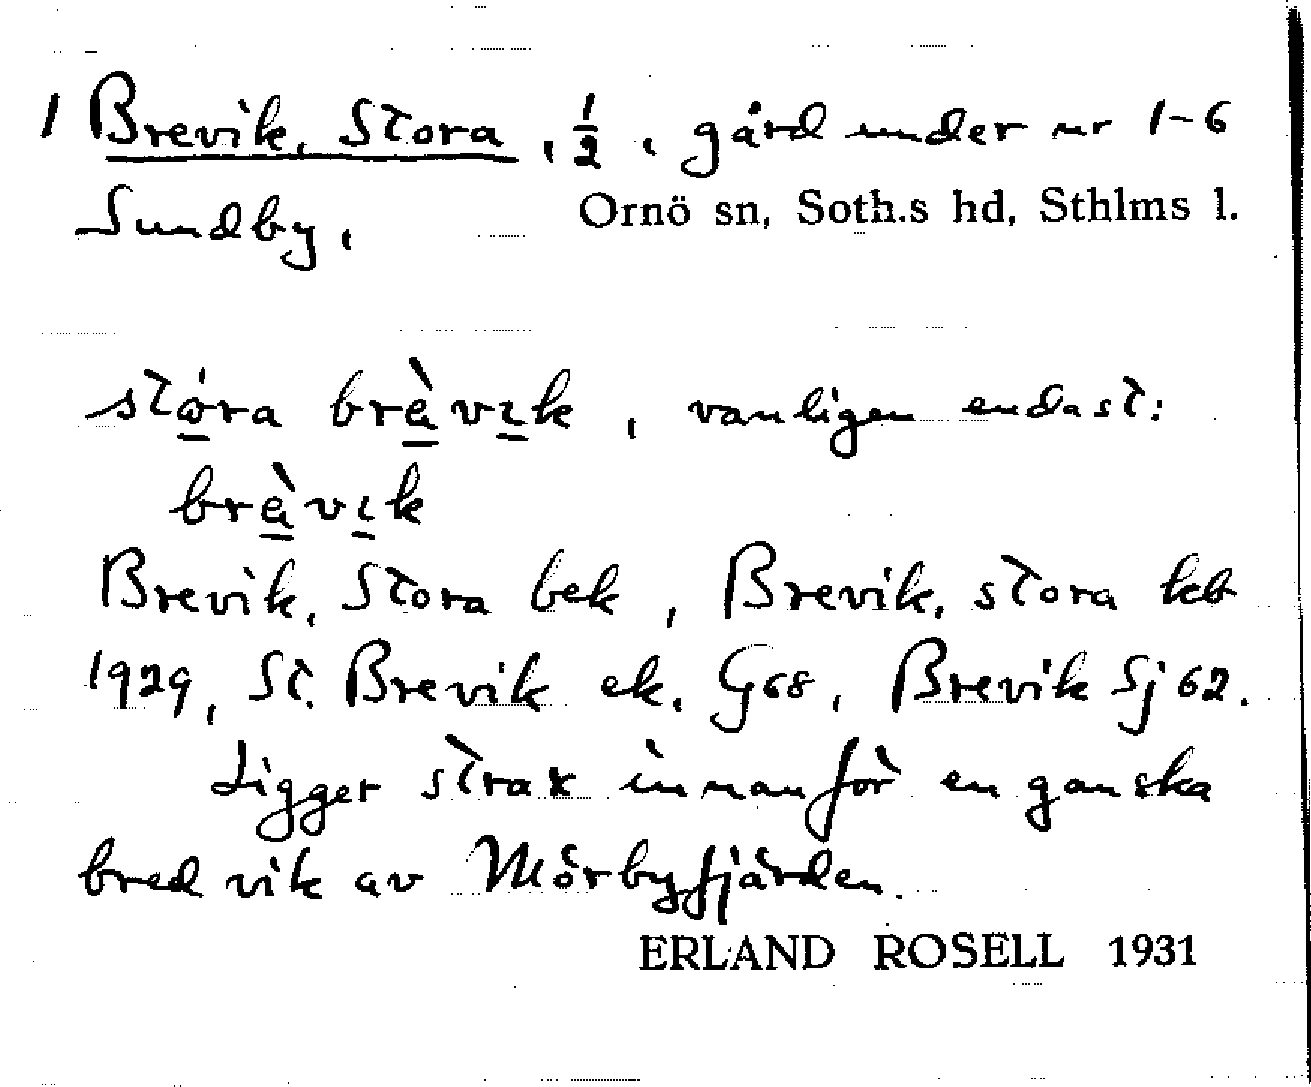 1 Brevik, Stora, 1/2, gård under nr 1-6
Sundby, Ornö sn, Soth.s hd, Sthlms l.
stóra brèvik, vanligen endast:
brèvik
Brevik, Stora bek, Brevik, stora kb
1929, St. Brevik ek. G68, Brevik Sj 62.
Ligger strax innanför en ganska
bred vik av Mörbyfjärden.
ERLAND ROSELL 1931